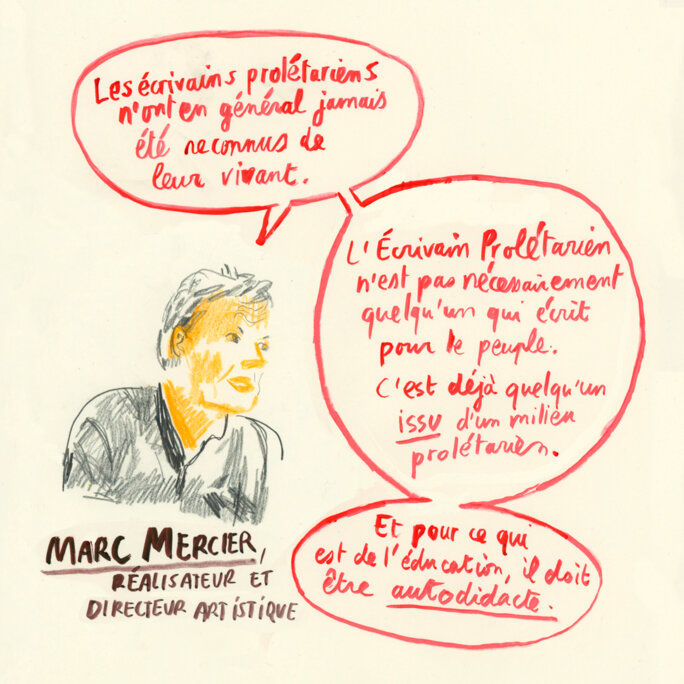 Les écrivains prolétariens
n'ont en général jamais
été reconnus de
leur vivant.
L'Écrivain Prolétarien
n'est pas nécessairement
quelqu'un qui écrit
pour le peuple.
C'est déjà quelqu'un
issu d'un milieu
prolétarien.
Et pour ce qui
est de l'éducation, il doit
être autodidacte.
MARC MERCIER,
RÉALISATEUR ET
DIRECTEUR ARTISTIQUE